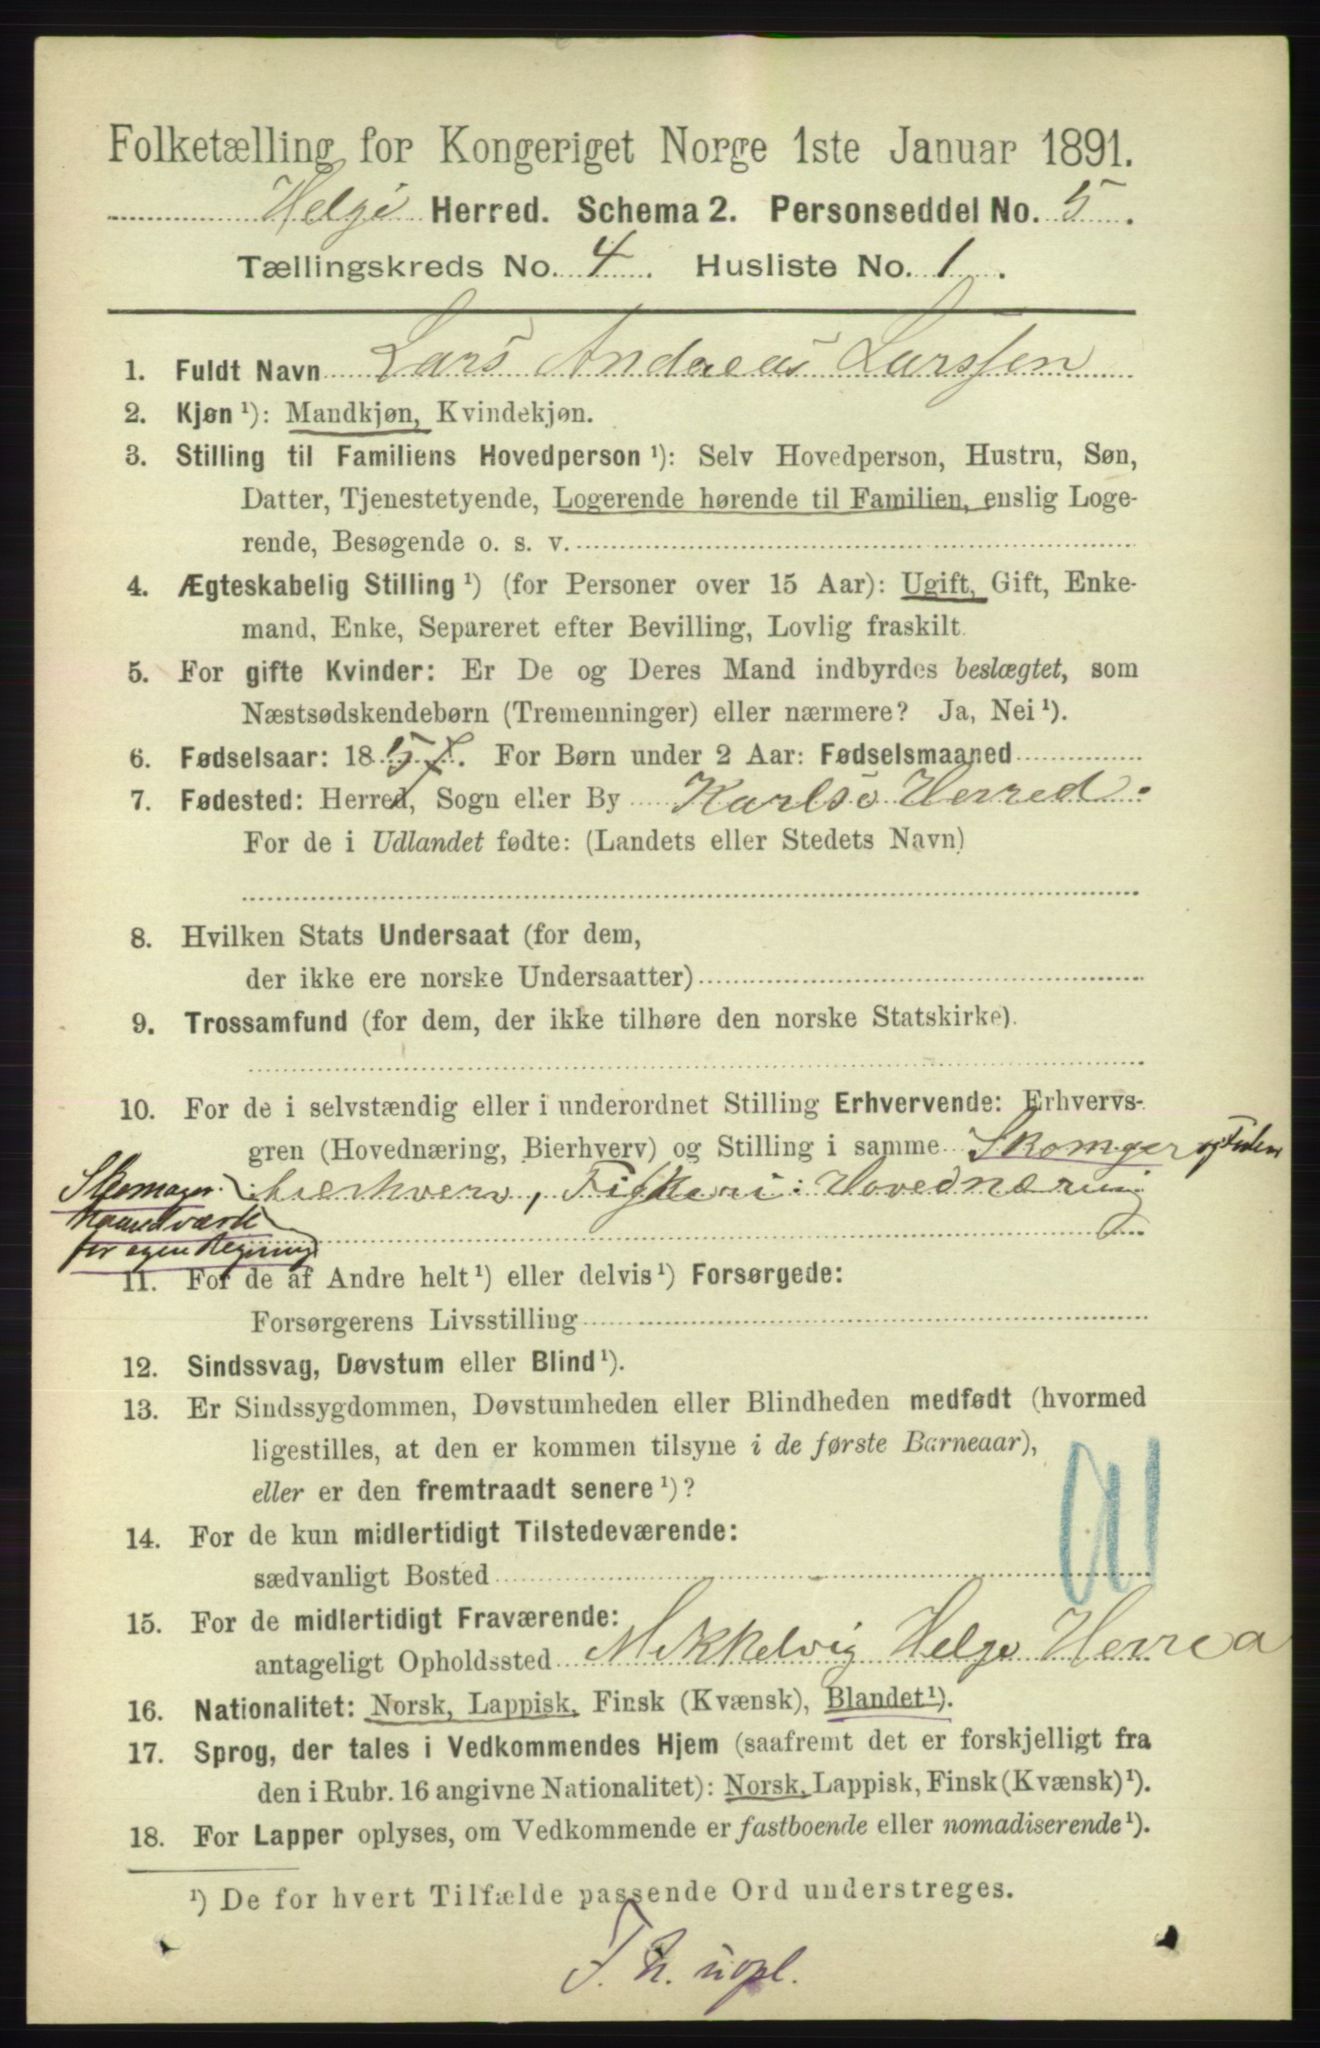 Folketælling for Kongeriget Norge 1ste Januar 1891.
Helgø Herred. Schema 2. Personseddel No. 5.
Tællingskreds No. 4. Husliste No. 1.
1. Fuldt Navn Lars Andreas Larssen
2. Kjøn ¹): Mandkjøn, Kvindekjøn.
3. Stilling til Familiens Hovedperson ¹): Selv Hovedperson, Hustru, Søn,
Datter, Tjenestetyende, Logerende hørende til Familien, enslig Loge-
rende, Besøgende o. s. v.
4. Ægteskabelig Stilling ¹) (for Personer over 15 Aar): Ugift, Gift, Enke-
mand, Enke, Separeret efter Bevilling, Lovlig fraskilt.
5. For gifte Kvinder: Er De og Deres Mand indbyrdes beslægtet, som
Næstsødskendebørn (Tremenninger) eller nærmere? Ja, Nei ¹).
6. Fødselsaar: 185 . For Børn under 2 Aar: Fødselsmaaned
7. Fødested: Herred, Sogn eller By Karlsø Herred.
For de i Udlandet fødte: (Landets eller Stedets Navn)
8. Hvilken Stats Undersaat (for dem,
der ikke ere norske Undersaatter)
9. Trossamfund (for dem, der ikke tilhøre den norske Statskirke).
10. For de i selvstændig eller i underordnet Stilling Erhvervende: Erhvervs-
gren (Hovednæring, Bierhverv) og Stilling i samme Skomger
Skomager: bierhverv, Fiskeri: Hovednæring
haandværk
for egen Regning
11. For de af Andre helt ¹) eller delvis ¹) Forsørgede:
Forsørgerens Livsstilling
12. Sindssvag, Døvstum eller Blind ¹).
13. Er Sindssygdommen, Døvstumheden eller Blindheden medfødt (hvormed
ligestilles, at den er kommen tilsyne i de første Barneaar),
eller er den fremtraadt senere ¹)?
14. For de kun midlertidigt Tilstedeværende:
sædvanligt Bosted
15. For de midlertidigt Fraværende:
antageligt Opholdssted Mikkelvig Helgø Herred
16. Nationalitet: Norsk, Lappisk, Finsk (Kvænsk), Blandet ¹).
17. Sprog, der tales i Vedkommendes Hjem (saafremt det er forskjelligt fra
den i Rubr. 16 angivne Nationalitet): Norsk, Lappisk, Finsk (Kvænsk) ¹).
18. For Lapper oplyses, om Vedkommende er fastboende eller nomadiserende ¹).
¹) De for hvert Tilfælde passende Ord understreges.